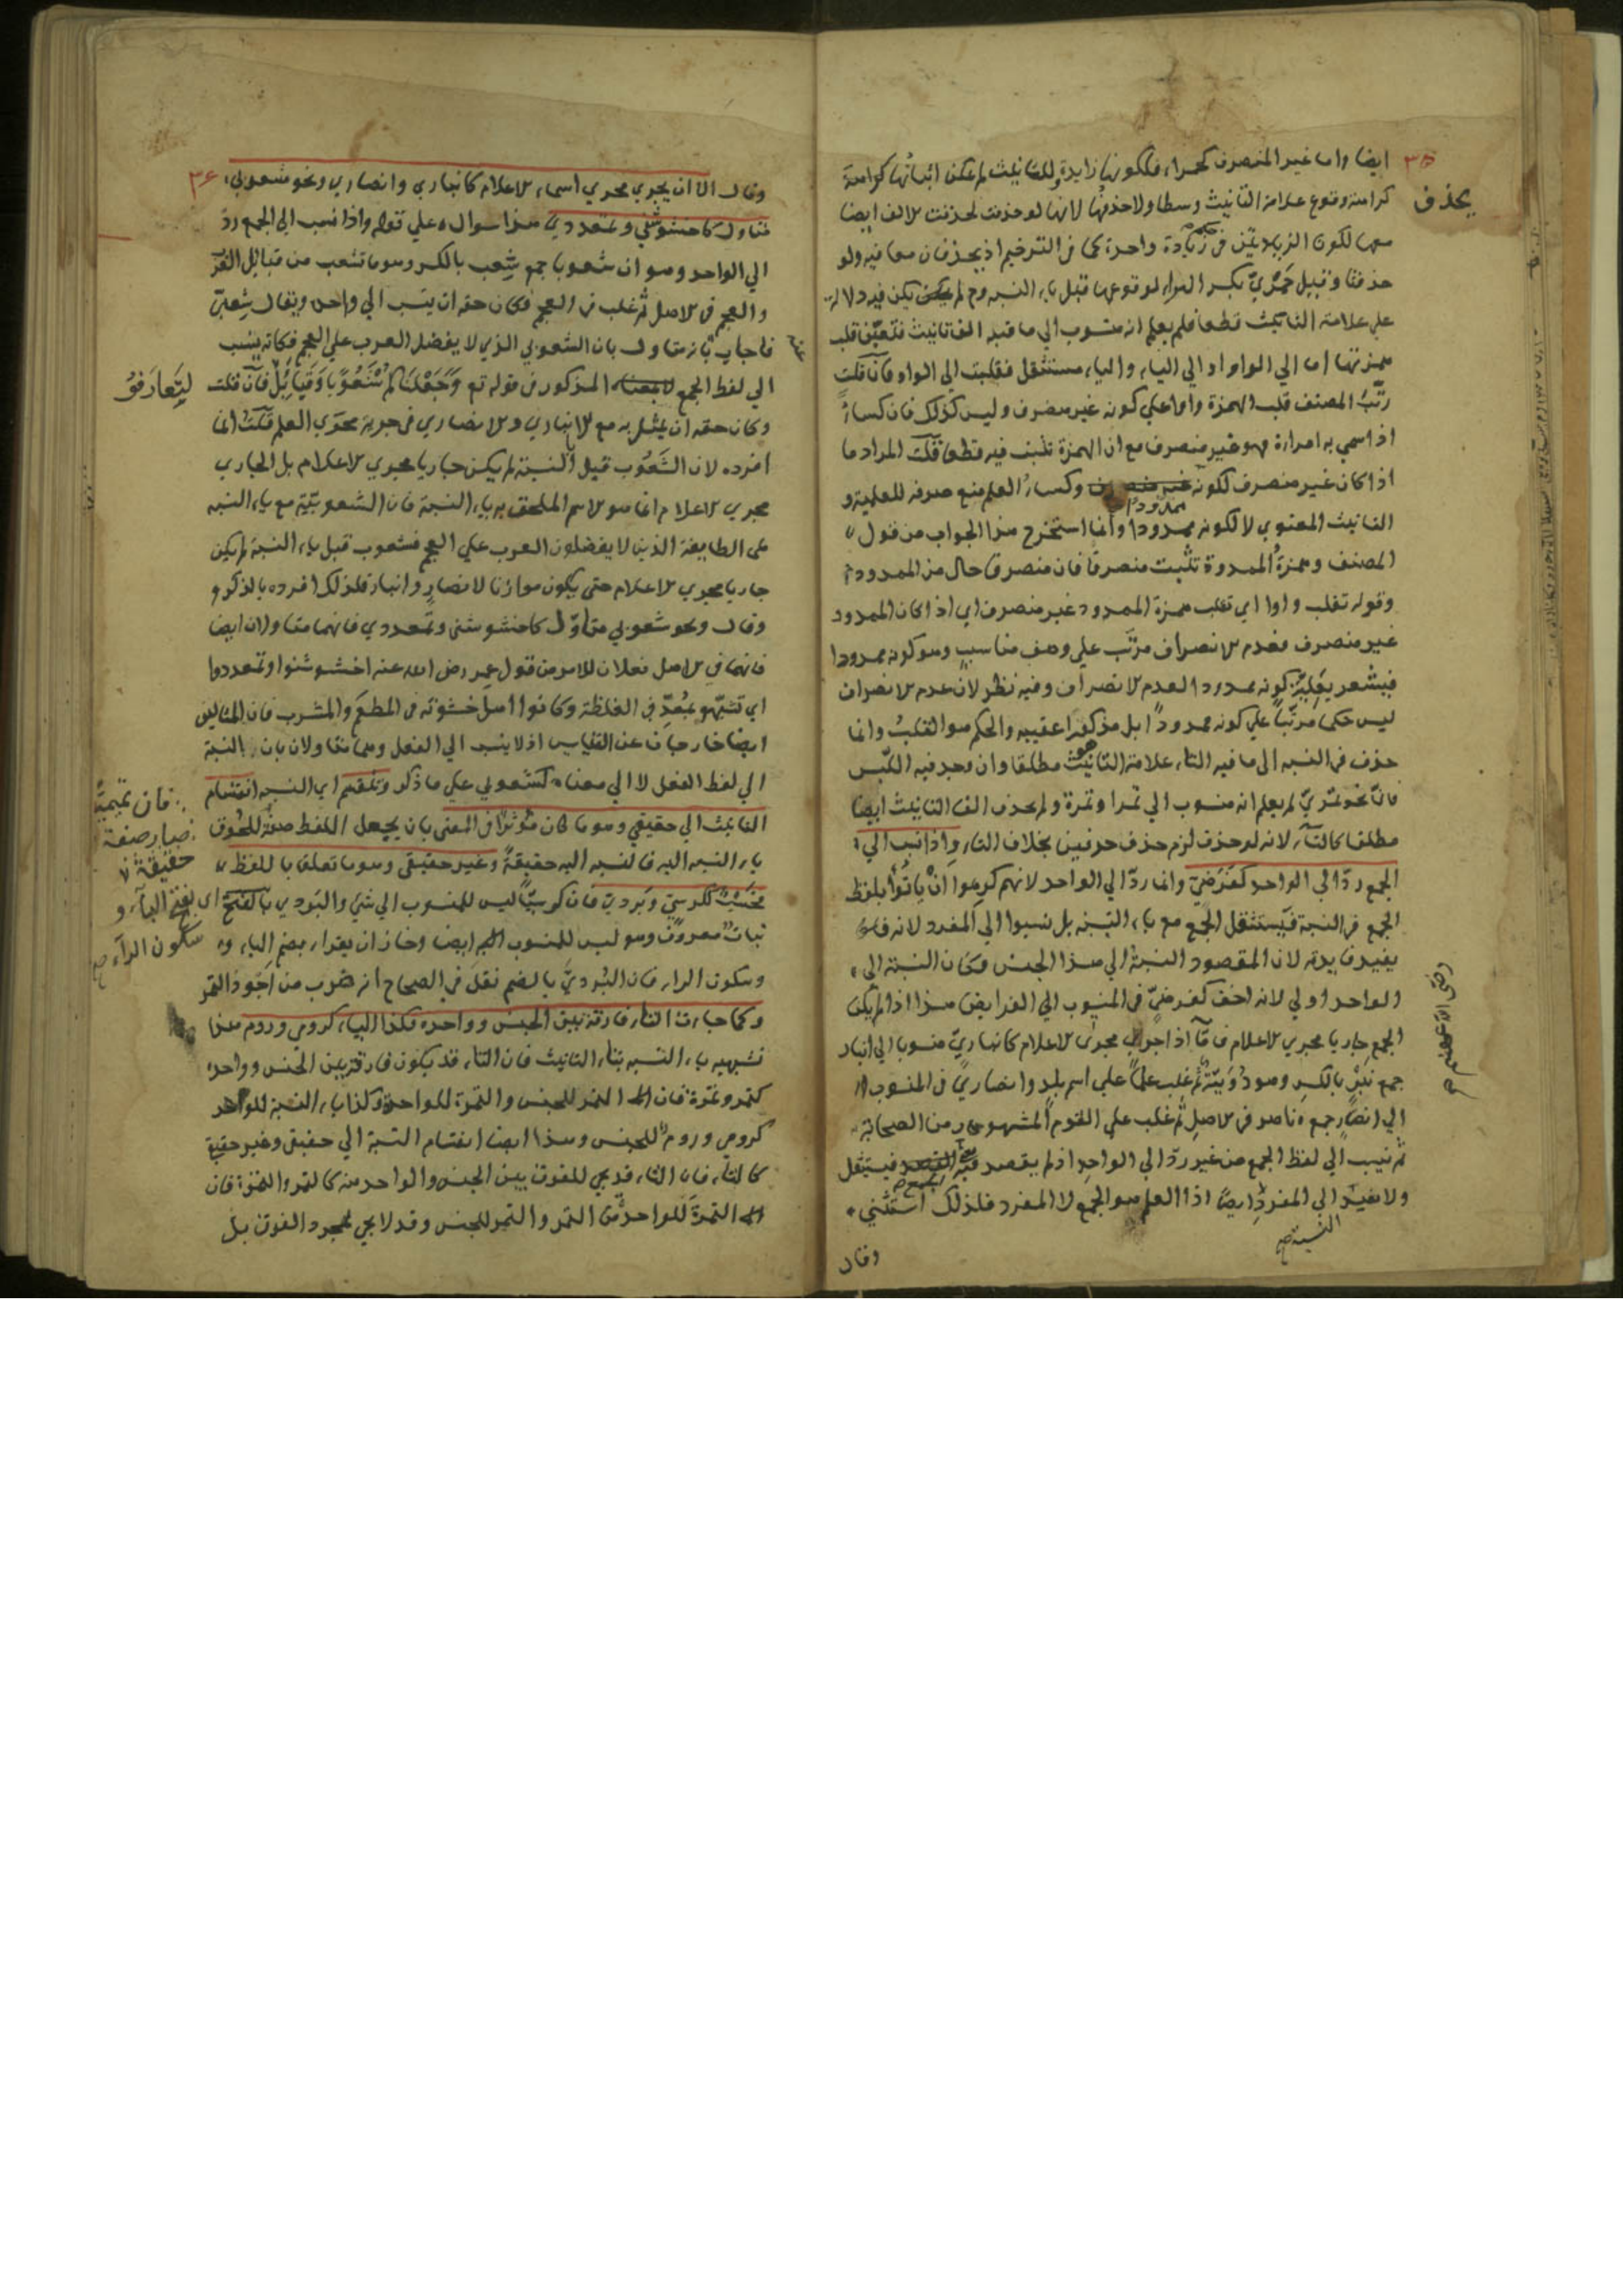 ايضا واما غير المنصرف كحمراء فلكونها زايدة للتانيث لم يمكن اثباتها كراهة
٣٥
يحذف
كراهة وقوع علامة التانيث وسطا ولا حذفها لانها لو حذفت لحذفت الالف ايضا
معها لكون الزيادتين في حكم زيادة واحدة كما في الترخيم اذ يحذفان معا فيه ولو
حذفتا وقيل حمري بكسر الراء لوقوعها قبل ياء النسبه وح لم يكن فيه دلالة
على علامة التانيث قطعا فلم يعلم انه منسوب الى ما فيه الف تانيث فتعين قلب
همزتها اما الى الواو او الى الياء والياء مستثقل فقلبت الى الواو فان قلت
رتب المصنف قلب الهمزة واوا على كونه غير منصرف وليس كذلك فان كساء
اذا سمي به امراة فهو غير منصرف مع ان الهمزة تثبت فيه قطعا قلت المراد ما
اذا كان غير منصرف لكونه ممدودا وكساء العلم منع صرفه للعلمية و
التانيث المعنوي لا لكونه ممدودا وانما استخرج هذا الجواب من قول
المصنف وهمزة الممدودة تثبت منصرفا فان منصرفا حال من الممدودة
وقوله تقلب واوا اي تقلب همزة الممدود غير منصرف اي اذا كان الممدود
غير منصرف فعدم الانصراف مرتب على وصف مناسب وهو كونه ممدودا
فيشعر بعلية كونه ممدودا لعدم الانصراف وفيه نظر لان عدم الانصراف
ليس حكما مرتبا على كونه ممدودا بل مذكورا عقيبه والحكم هو القلب وانما
حذف في النسبه الى ما فيه التاء علامة التانيث مطلقا وان وجد فيه اللبس
فان نحو تمري لم يعلم انه منسوب الى تمر او تمرة ولم يحذف الف التانيث ايضا
مطلقا كالتاء لانه لو حذف لزم حذف حرفين بخلاف التاء واذا نسب الى
الجمع رد الى الواحد كفرضي وانما رد الى الواحد لانهم كرهوا ان ياتوا بلفظ
الجمع في النسبة فيستثقل الجمع مع ياء النسبة بل نسبوا الى المفرد لانه
يفيد فايدته لان المقصود النسبة الى هذا الجنس فكان النسبة الى
الواحد اولى لانه اخف كفرضي في المنسوب الى الفرايض هذا اذا لم يكن
الجمع جاريا مجرى الاعلام فاما اذا اجري مجرى الاعلام كانباري منسوبا الى انبار
جمع نبر بالكسر وهو دويبة ثم غلب علما على اسم بلد وانصاري في المنسوب
الى انصار جمع ناصر في الاصل ثم غلب على القوم المشهور من الصحابة
رضي الله عنهم
ثم نسب الى لفظ الجمع من غير رد الى الواحد اذ لم يقصد فيستثقل
ولا يفيد الى المفرد ايضا اذا العلم هو الجمع لا المفرد فلذلك استثني
النسبة صح
وقال
وقال الا ان يجري مجري اسماء الاعلام كانباري وانصاري ونحو شعوبي
٣٦
متاول كاخشوشني وتمعددي هذا سوال على قوله واذا نسب الى الجمع رد
الى الواحد وهو ان شعوبا جمع شعب بالكسر وهو ما تشعب من قبائل العرب
والعجم في الاصل ثم غلب في العجم فكان حقه ان ينسب الى واحده ويقال شعبي
فاجاب بانه متاول بان الشعوبي الذي لا يفضل العرب على العجم فكانه ينسب
الى لفظ الجمع المذكور في قوله تع وجعلناكم شعوبا وقبائل فان قلت
لتعارفوا
وكان حقه ان يمثل به مع الانباري والانصاري في جريه مجرى العلم قلت انما
افرده لان الشعوب قبل النسبة لم يكن جاريا مجري الاعلام بل الجاري
مجري الاعلام انما هو الاسم الملحق به ياء النسبة فان الشعوبية مع ياء النسبه
على الطايفة الذين لا يفضلون العرب على العجم فشعوب قبل ياء النسبة لم يكن
جاريا مجري الاعلام حتى يكون موازنا لانصار وانبار فلذلك افرده بالذكر و
وقال ونحو شعوبي متاول كاخشوشني وتمعددي فانهما متاولان ايضا
فانهما في الاصل فعلان للامر من قول عمر رضي الله عنه اخشوشنوا وتمعددوا
اي تشبهوا بمعد في الغلظة وكانوا اهل خشونة في المطعم والمشرب فان المثالين
ايضا خارجان عن القياس اذ لا ينسب الى الفعل وهما متاولان بان النسبة
الى لفظ الفعل لا الى معناه كشعوبي على ما ذكر وتنقسم اي النسبه انقسام
التانيث الى حقيقي وهو ما كان مؤثرا في المعنى بان يجعل اللفظ صفة للحوق
فان تميميا
صار صفة
حقيقة
ياء النسبه اليه فالنسبه اليه حقيقة وغير حقيقي وهو ما تعلق باللفظ
فحسب ككرسي وبردي فان كرسيا ليس للمنسوب الى شيء والبردي بالفتح
اي بفتح الباء و
سكون الراء صح
نبات معروف وهو ليس للمنسوب اليه ايضا وجاز ان يقراء بضم الباء
وسكون الراء فان البردي بالضم نقل في الصحاح انه ضرب من اجود التمر
وكما جاءت التاء فارقة بين الجنس وواحده فكذا الياء كرومي وروم هذا
تشبيه ياء النسبه بتاء التانيث فان التاء قد يكون فارقة بين الجنس وواحده
كتمر وتمرة فان التمر للجنس والتمرة للواحدة وكذا ياء النسبة للواحد
كرومي وروم للجنس وهذا ايضا انقسام النسبة الى حقيقي وغير حقيقي
كالتاء فان التاء قد يجي للفرق بين الجنس والواحد منه كالتمر والتمرة فان
التمرة للواحدة من التمر والتمر للجنس وقد لا يجي لمجرد الفرق بل